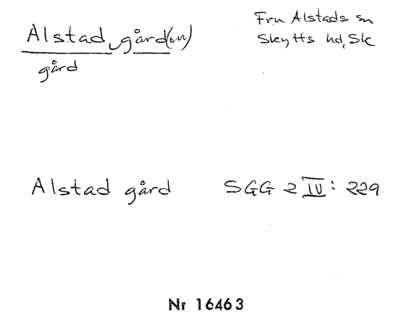 Alstad, gård(en)
gård
Fru Alstads sn
Skytts hd, Sk
Alstad gård SGG 2 IV: 229
Nr 16463